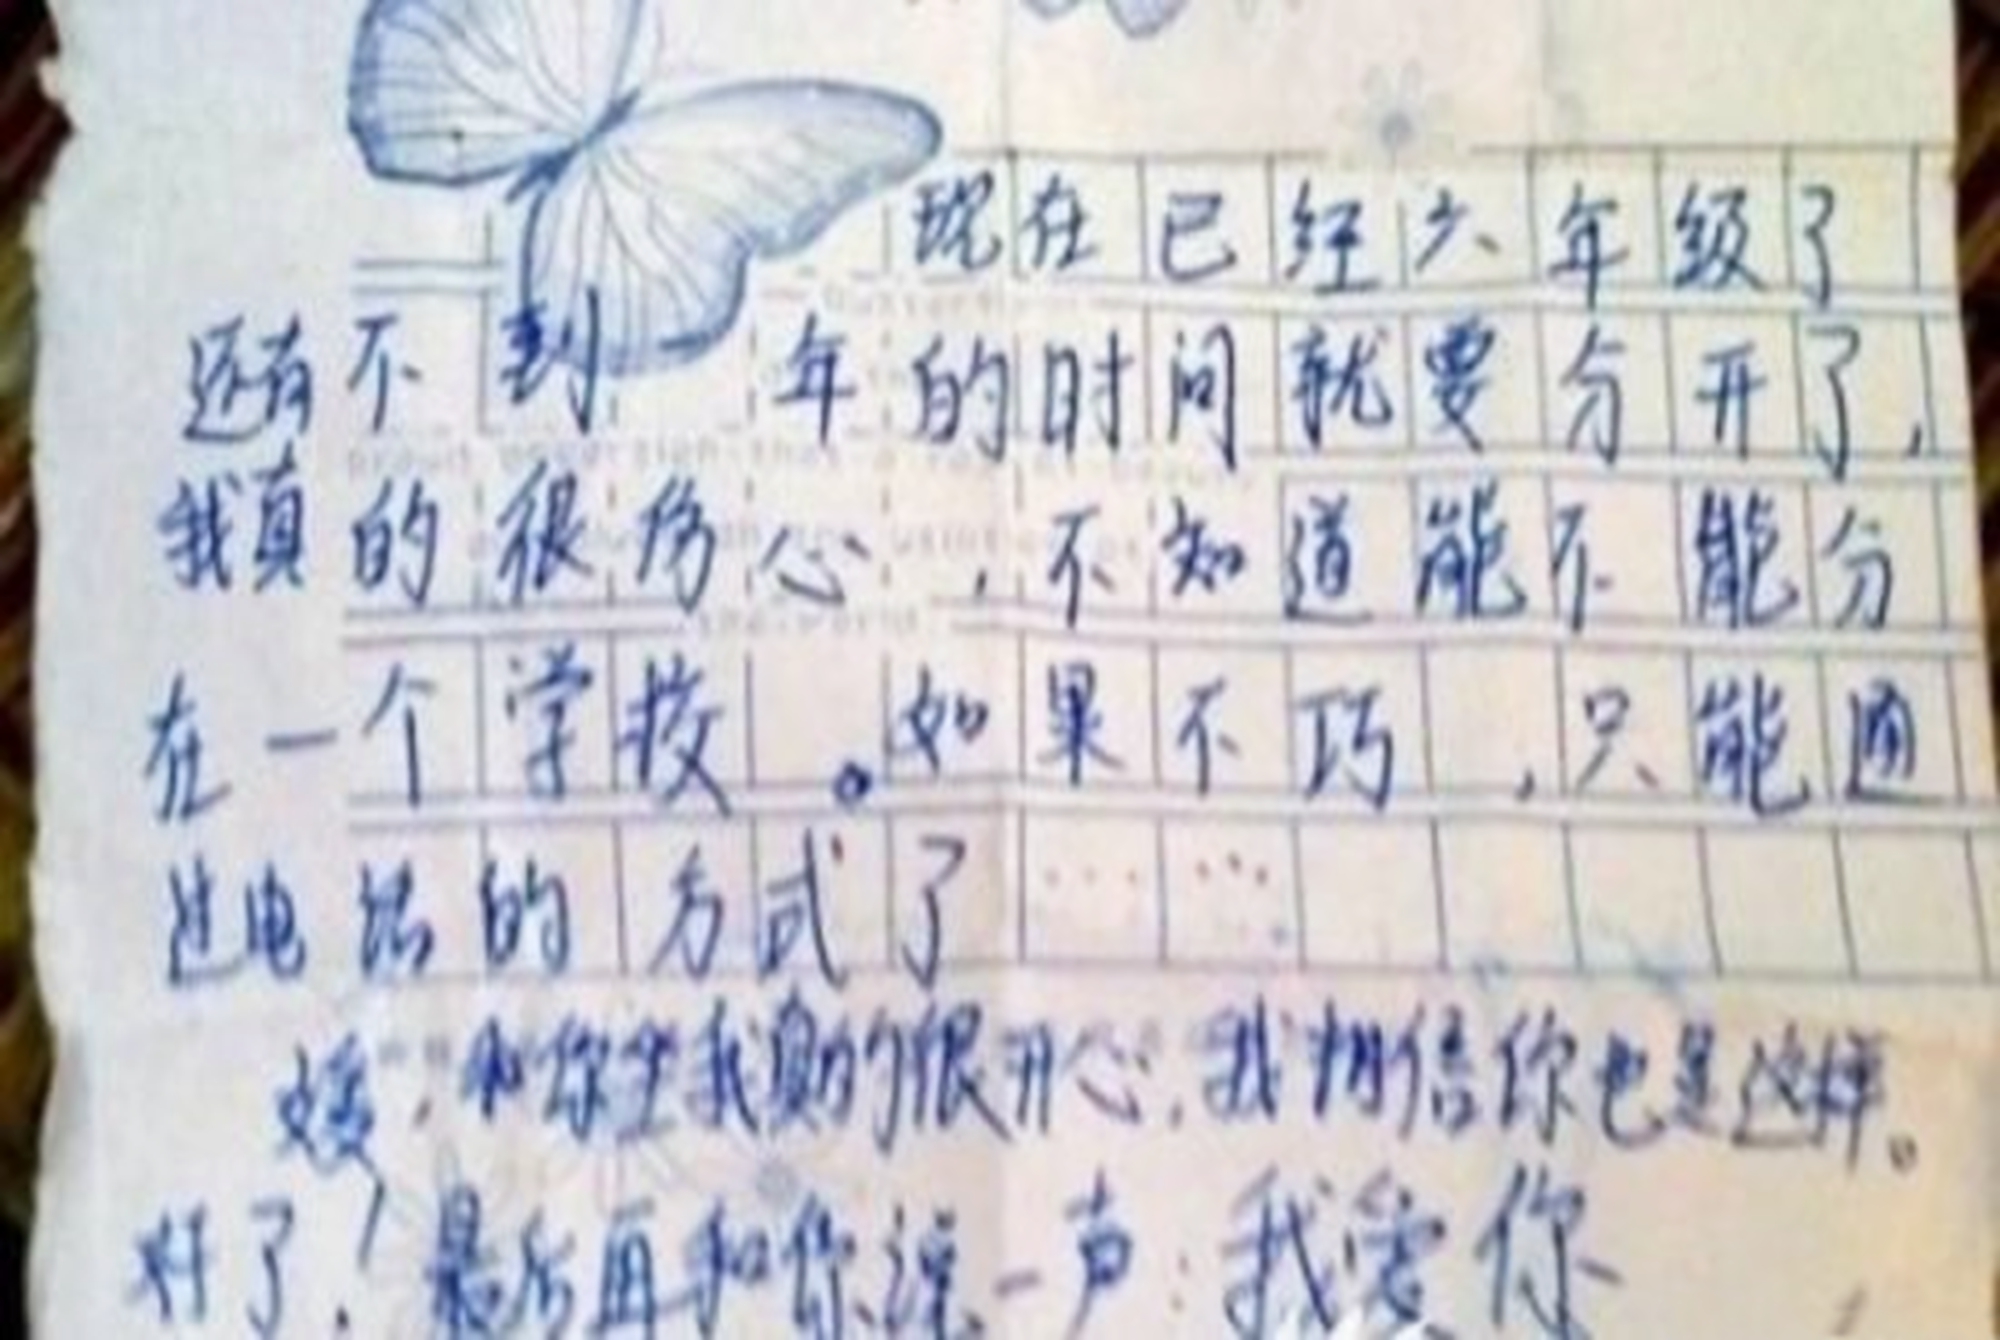 现在已经六年级了
还有不到一年的时间就要分开了，
我真的很伤心，不知道能不能分
在一个学校。如果不巧，只能通
过电话的方式了……
媛，和你坐我真的很开心，我相信你也是这样。
好了，最后再和你说一声：我爱你